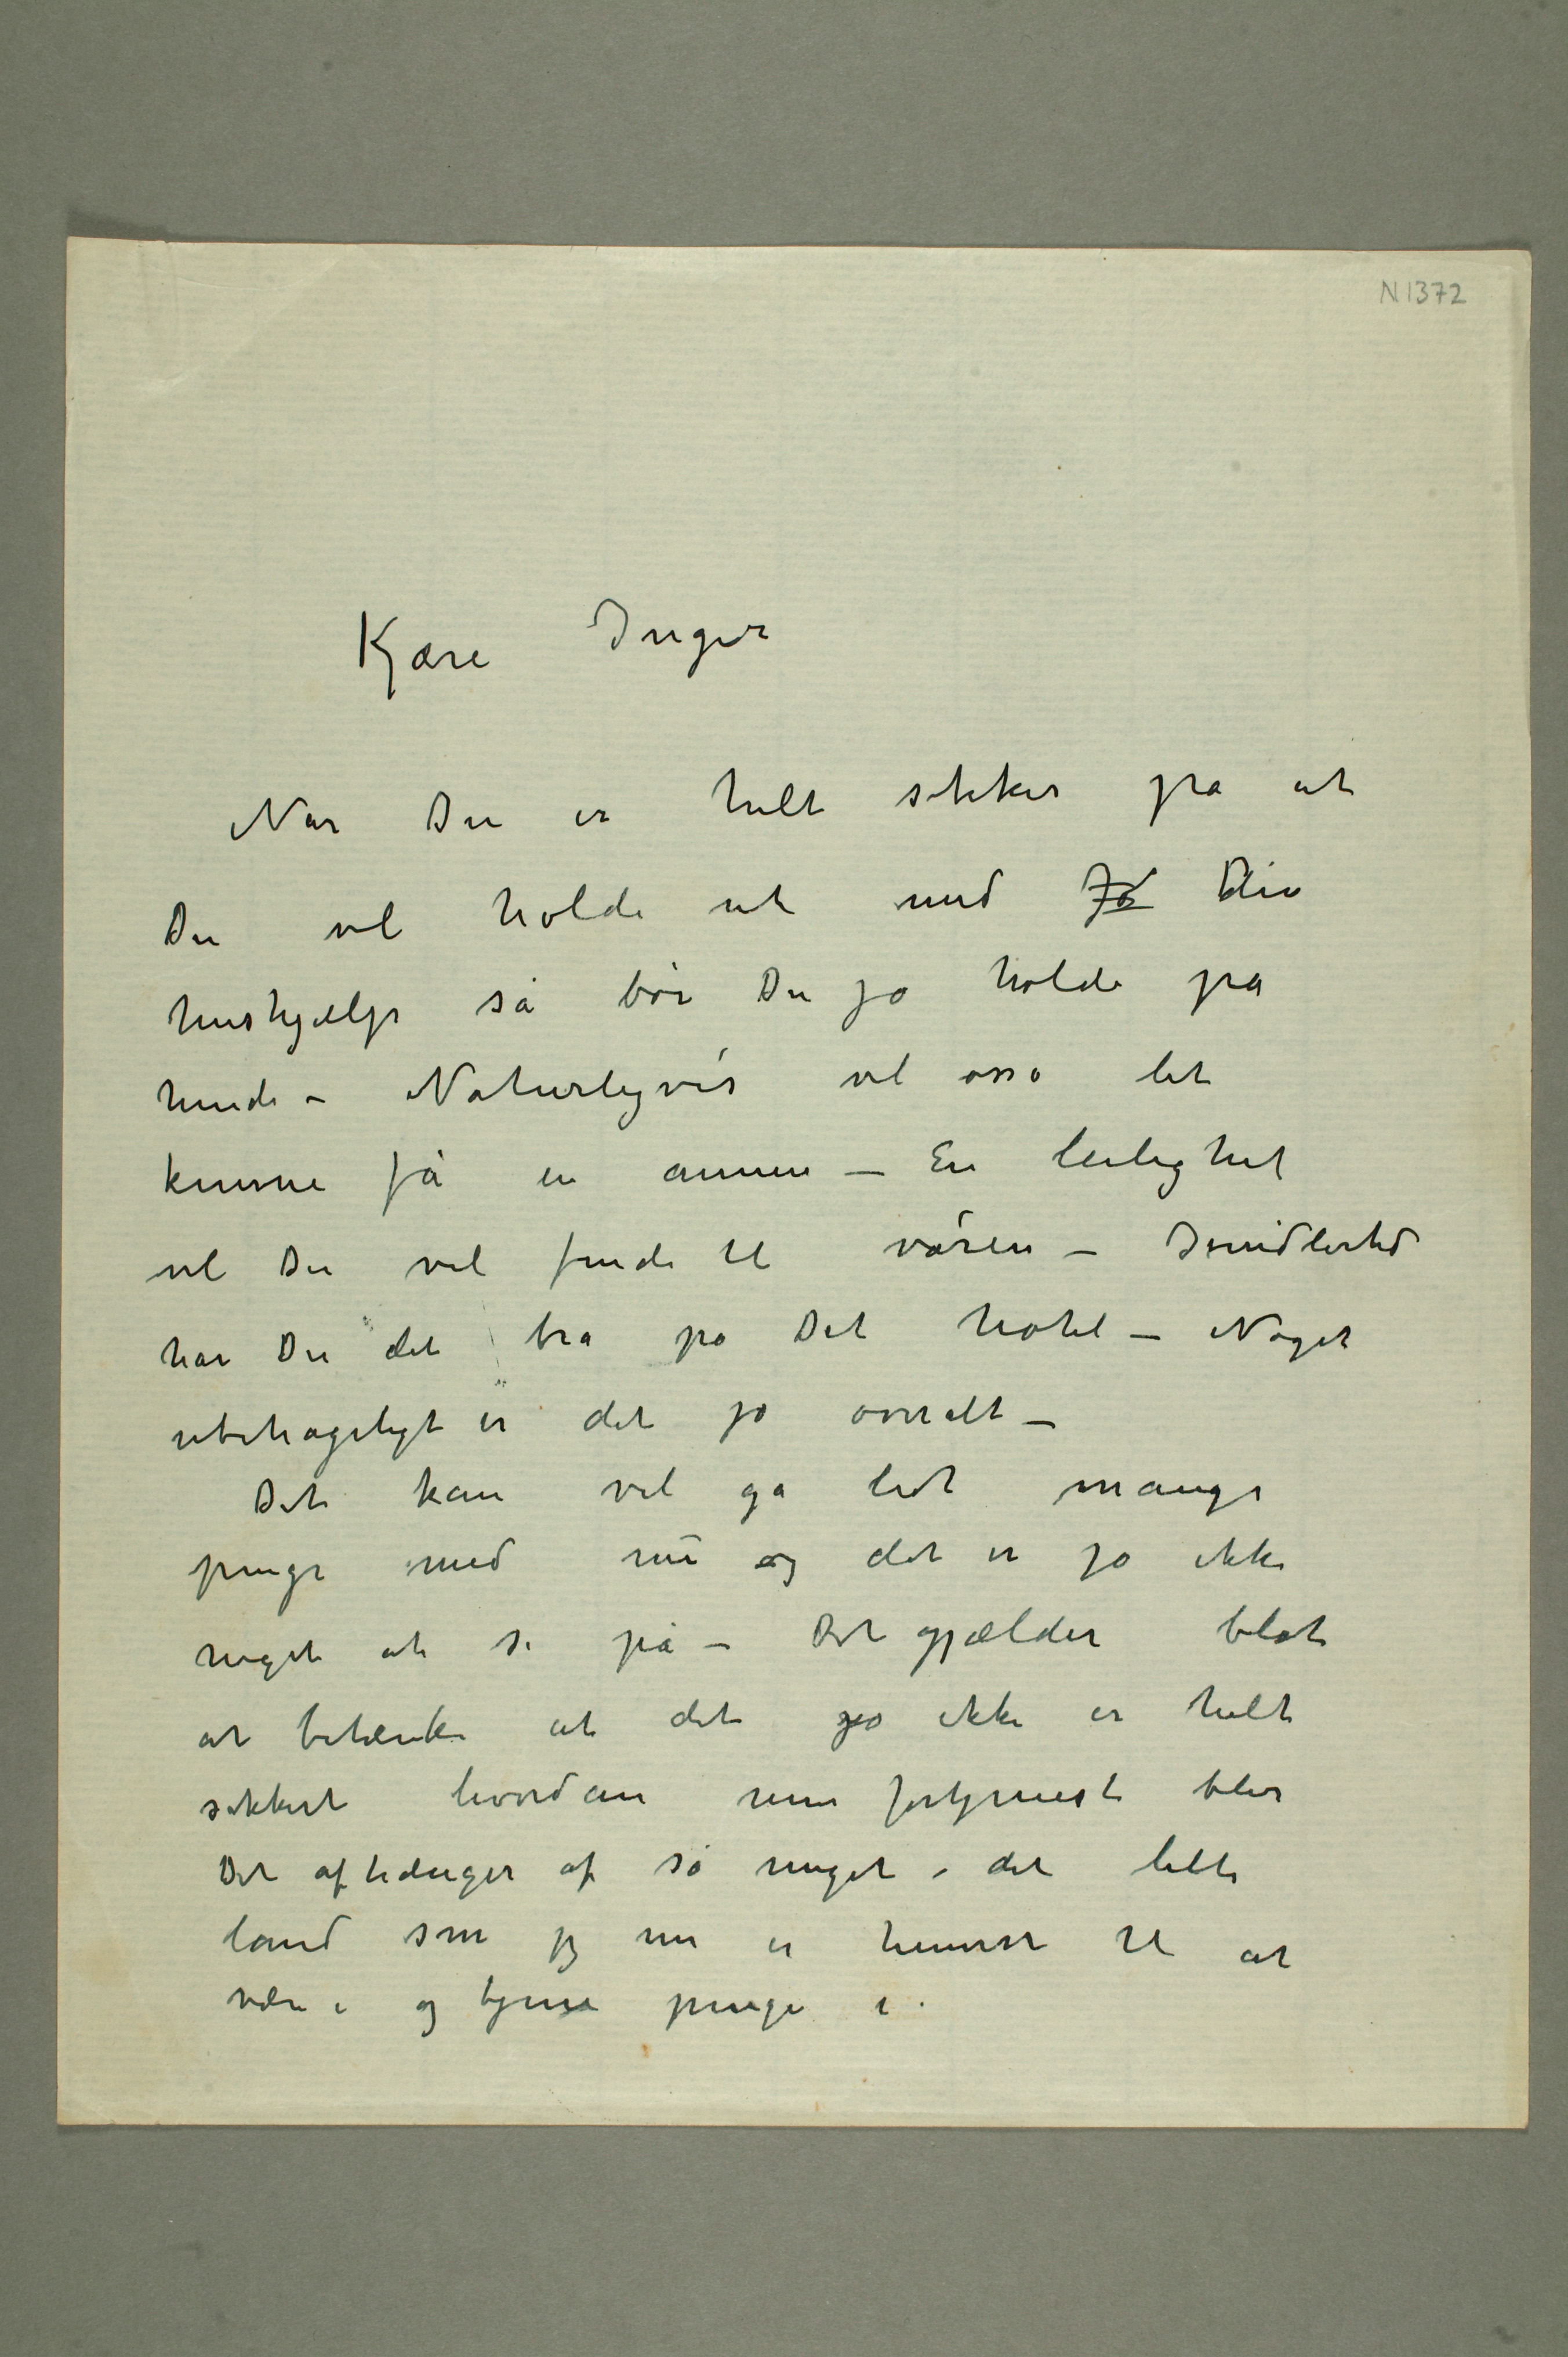 N 1372
Kjære Inger
Når Du er helt sikker på at
Du vil holde ut med Din
hushjælp så bør Du jo holde på
hende – Naturligvis vil osså let
kunne få en annen – En leilighet
vil Du vel finde til våren – Imidlertid
har Du det bra på Det hotel – Noget
ubehageligt er det jo overalt –
Det kan vel gå lidt mange
penge med nu og det er jo ikke
noget at se på – Det gjælder blot
at betænke at det jo ikke er helt
sikkert hvordan min fortjeneste blir
Det afhænger af så meget i det lille
land som jeg nu er henvist til at
være i og tjene penge i.